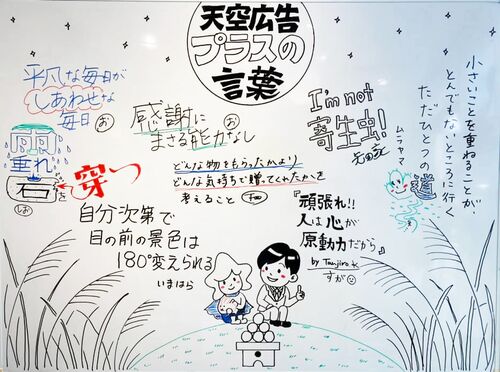 天空広告
プラスの
言葉
平凡な毎日が
しあわせな
毎日
お
感謝に
まさる能力なし
お
I'm not
寄生虫!
小さいことを重ねることが、
とんでもないところに行く
ただひとつの
道
ムラヤマ
雨
垂れ
石
を
穿つ
しお
どんな物をもらったかより
どんな気持ちで贈ってくれたかを
考えること
自分次第で
目の前の景色は
180°変えられる
いまはら
『頑張れ!!
人は心が
原動力だから』
by Tanjiro.K
すが